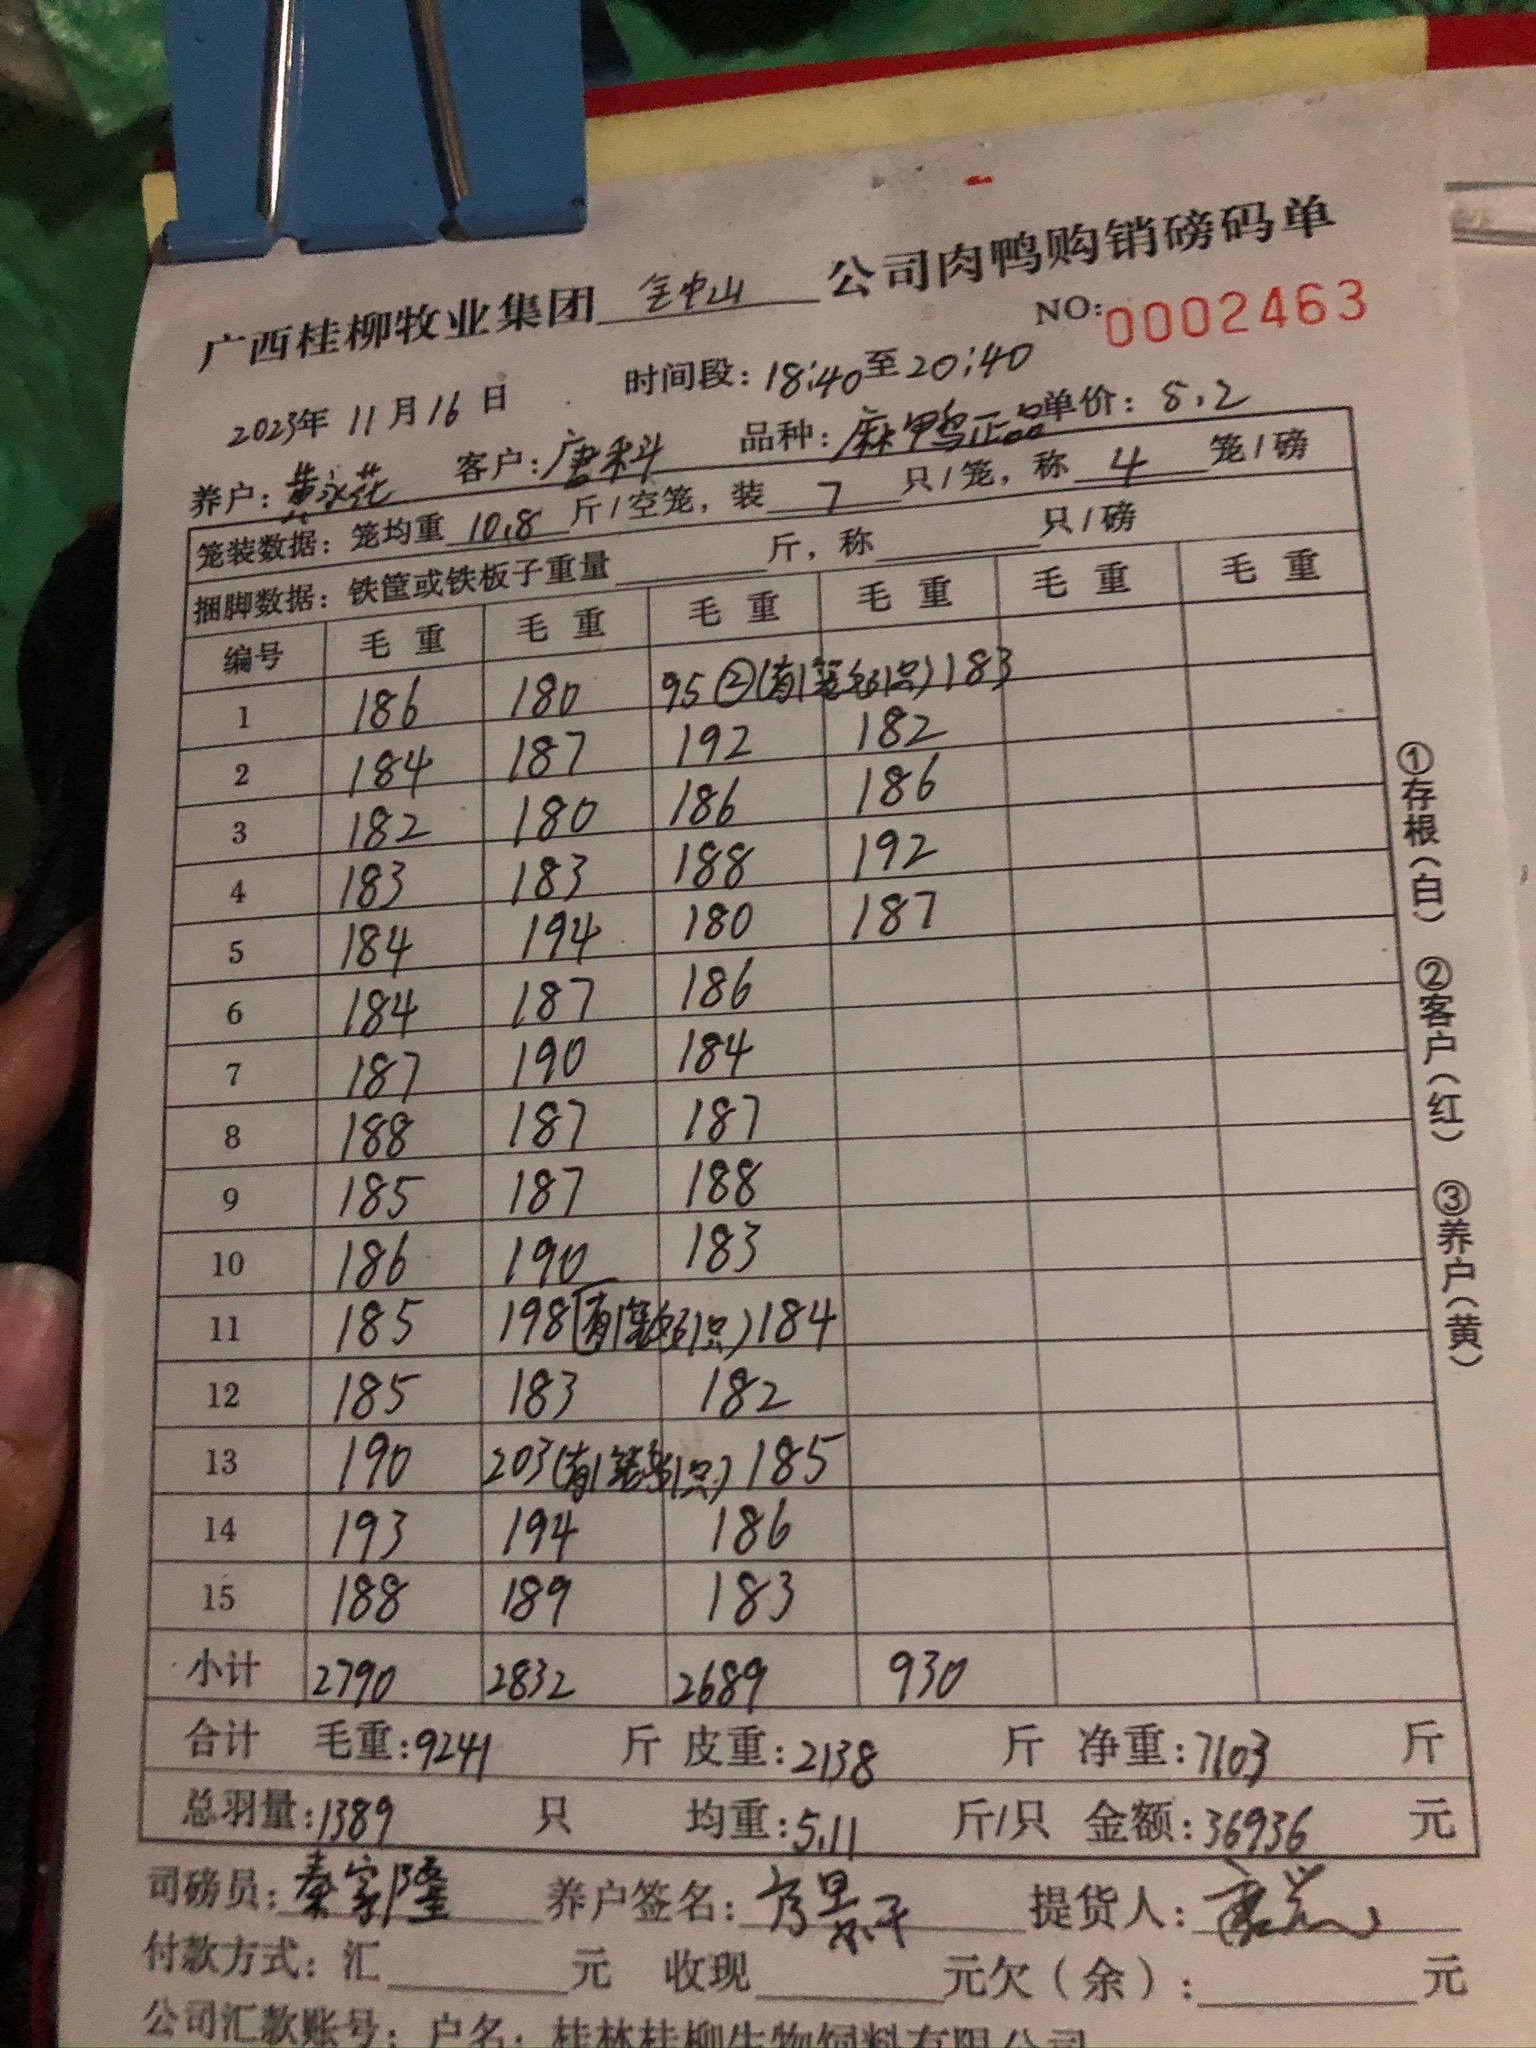 广西桂柳牧业集团 金中山 公司肉鸭购销磅码单
NO: 0002463
2023年 11月16日 时间段：18:40至20:40
养户：黄永花 客户：唐科 品种：麻鸭正品 单价：5.2
笼装数据：笼均重 10.8 斤/空笼，装 7 只/笼，称 4 笼/磅
捆脚数据：铁筐或铁板子重量 斤，称 只/磅
编号 毛重 毛重 毛重 毛重 毛重 毛重
1 186 180 95②(有1笼包1只) 183
2 184 187 192 182
3 182 180 186 186
4 183 183 188 192
5 184 194 180 187
6 184 187 186
7 187 190 184
8 188 187 187
9 185 187 188
10 186 190 183
11 185 198(有1笼包1只) 184
12 185 183 182
13 190 203(有1笼包1只) 185
14 193 194 186
15 188 189 183
小计 2790 2832 2689 930
合计 毛重：9241 斤 皮重：2138 斤 净重：7103 斤
总羽量：1389 只 均重：5.11 斤/只 金额：36936 元
司磅员：秦家隆 养户签名： 提货人：
付款方式：汇 元 收现 元欠（余）： 元
公司汇款账号：户名：桂林桂柳生物饲料有限公司
①存根（白） ②客户（红） ③养户（黄）